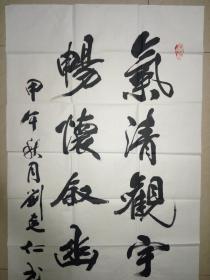 氣清觀宇
暢懷敘幽
甲午秋月劉克仁书